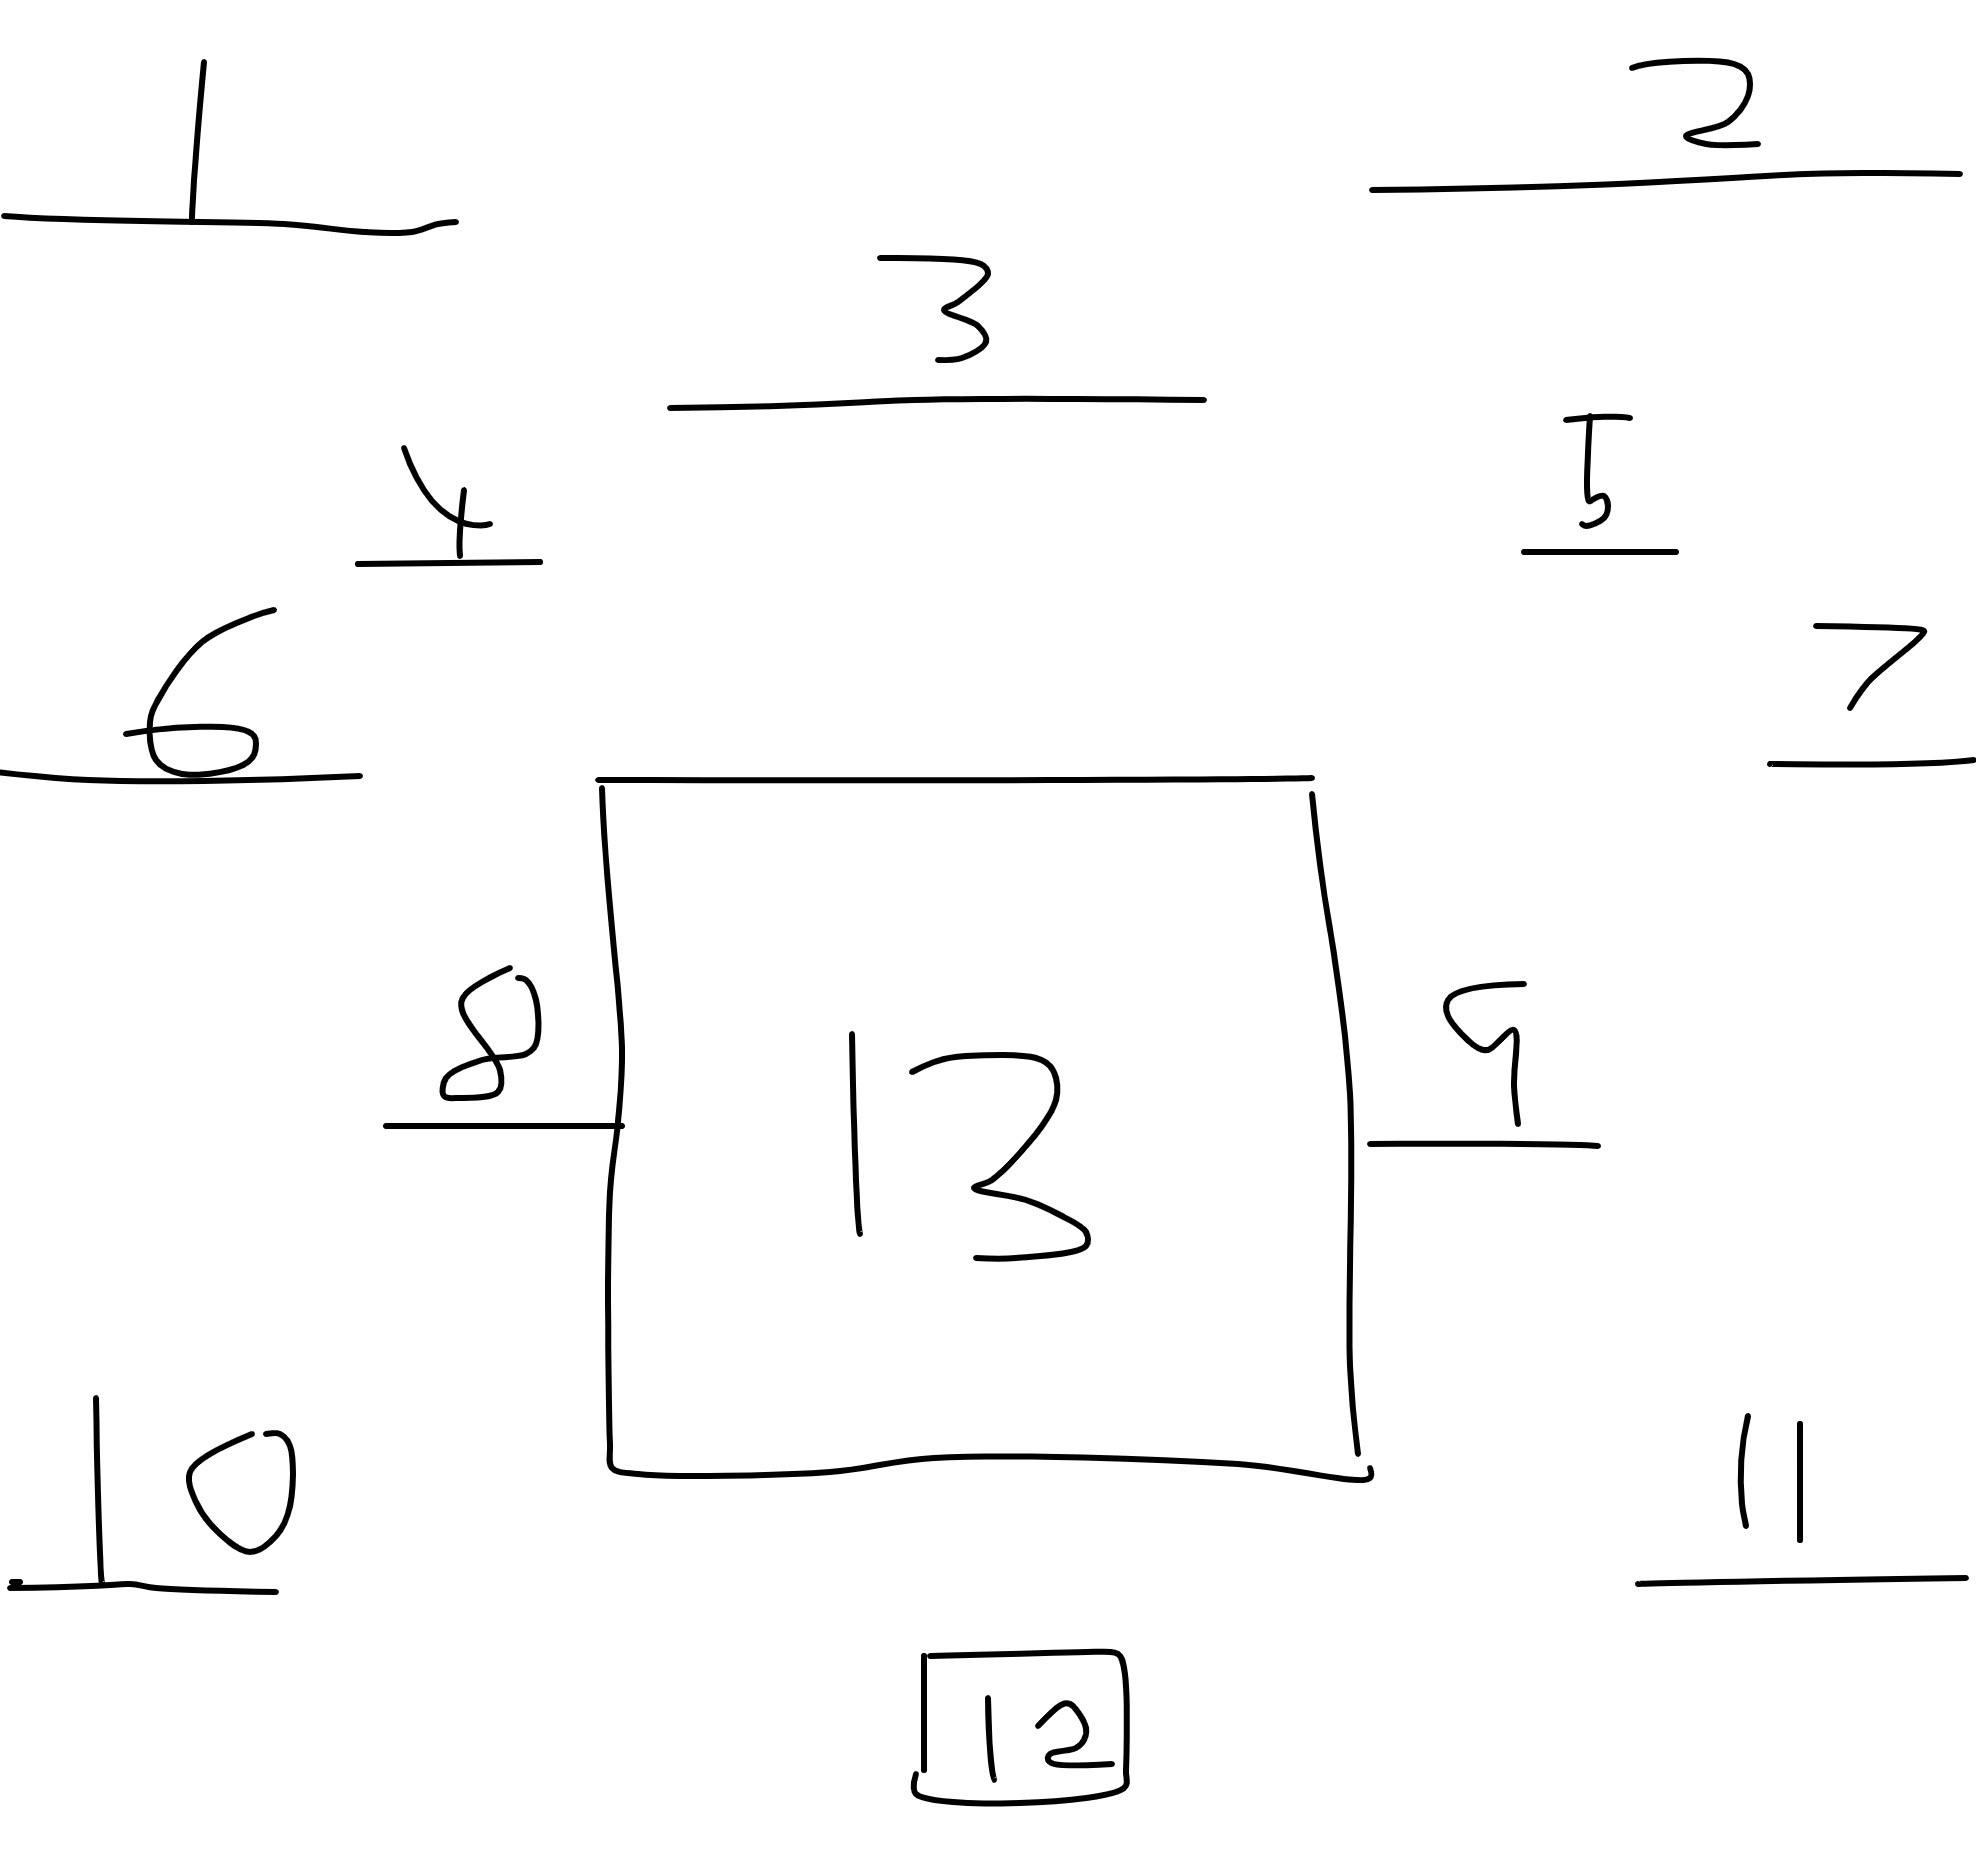 1
2
3
4
5
6
7
8
9
13
10
11
12